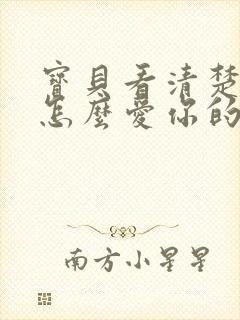 寶貝看清楚
怎麼愛你的
南方小星星